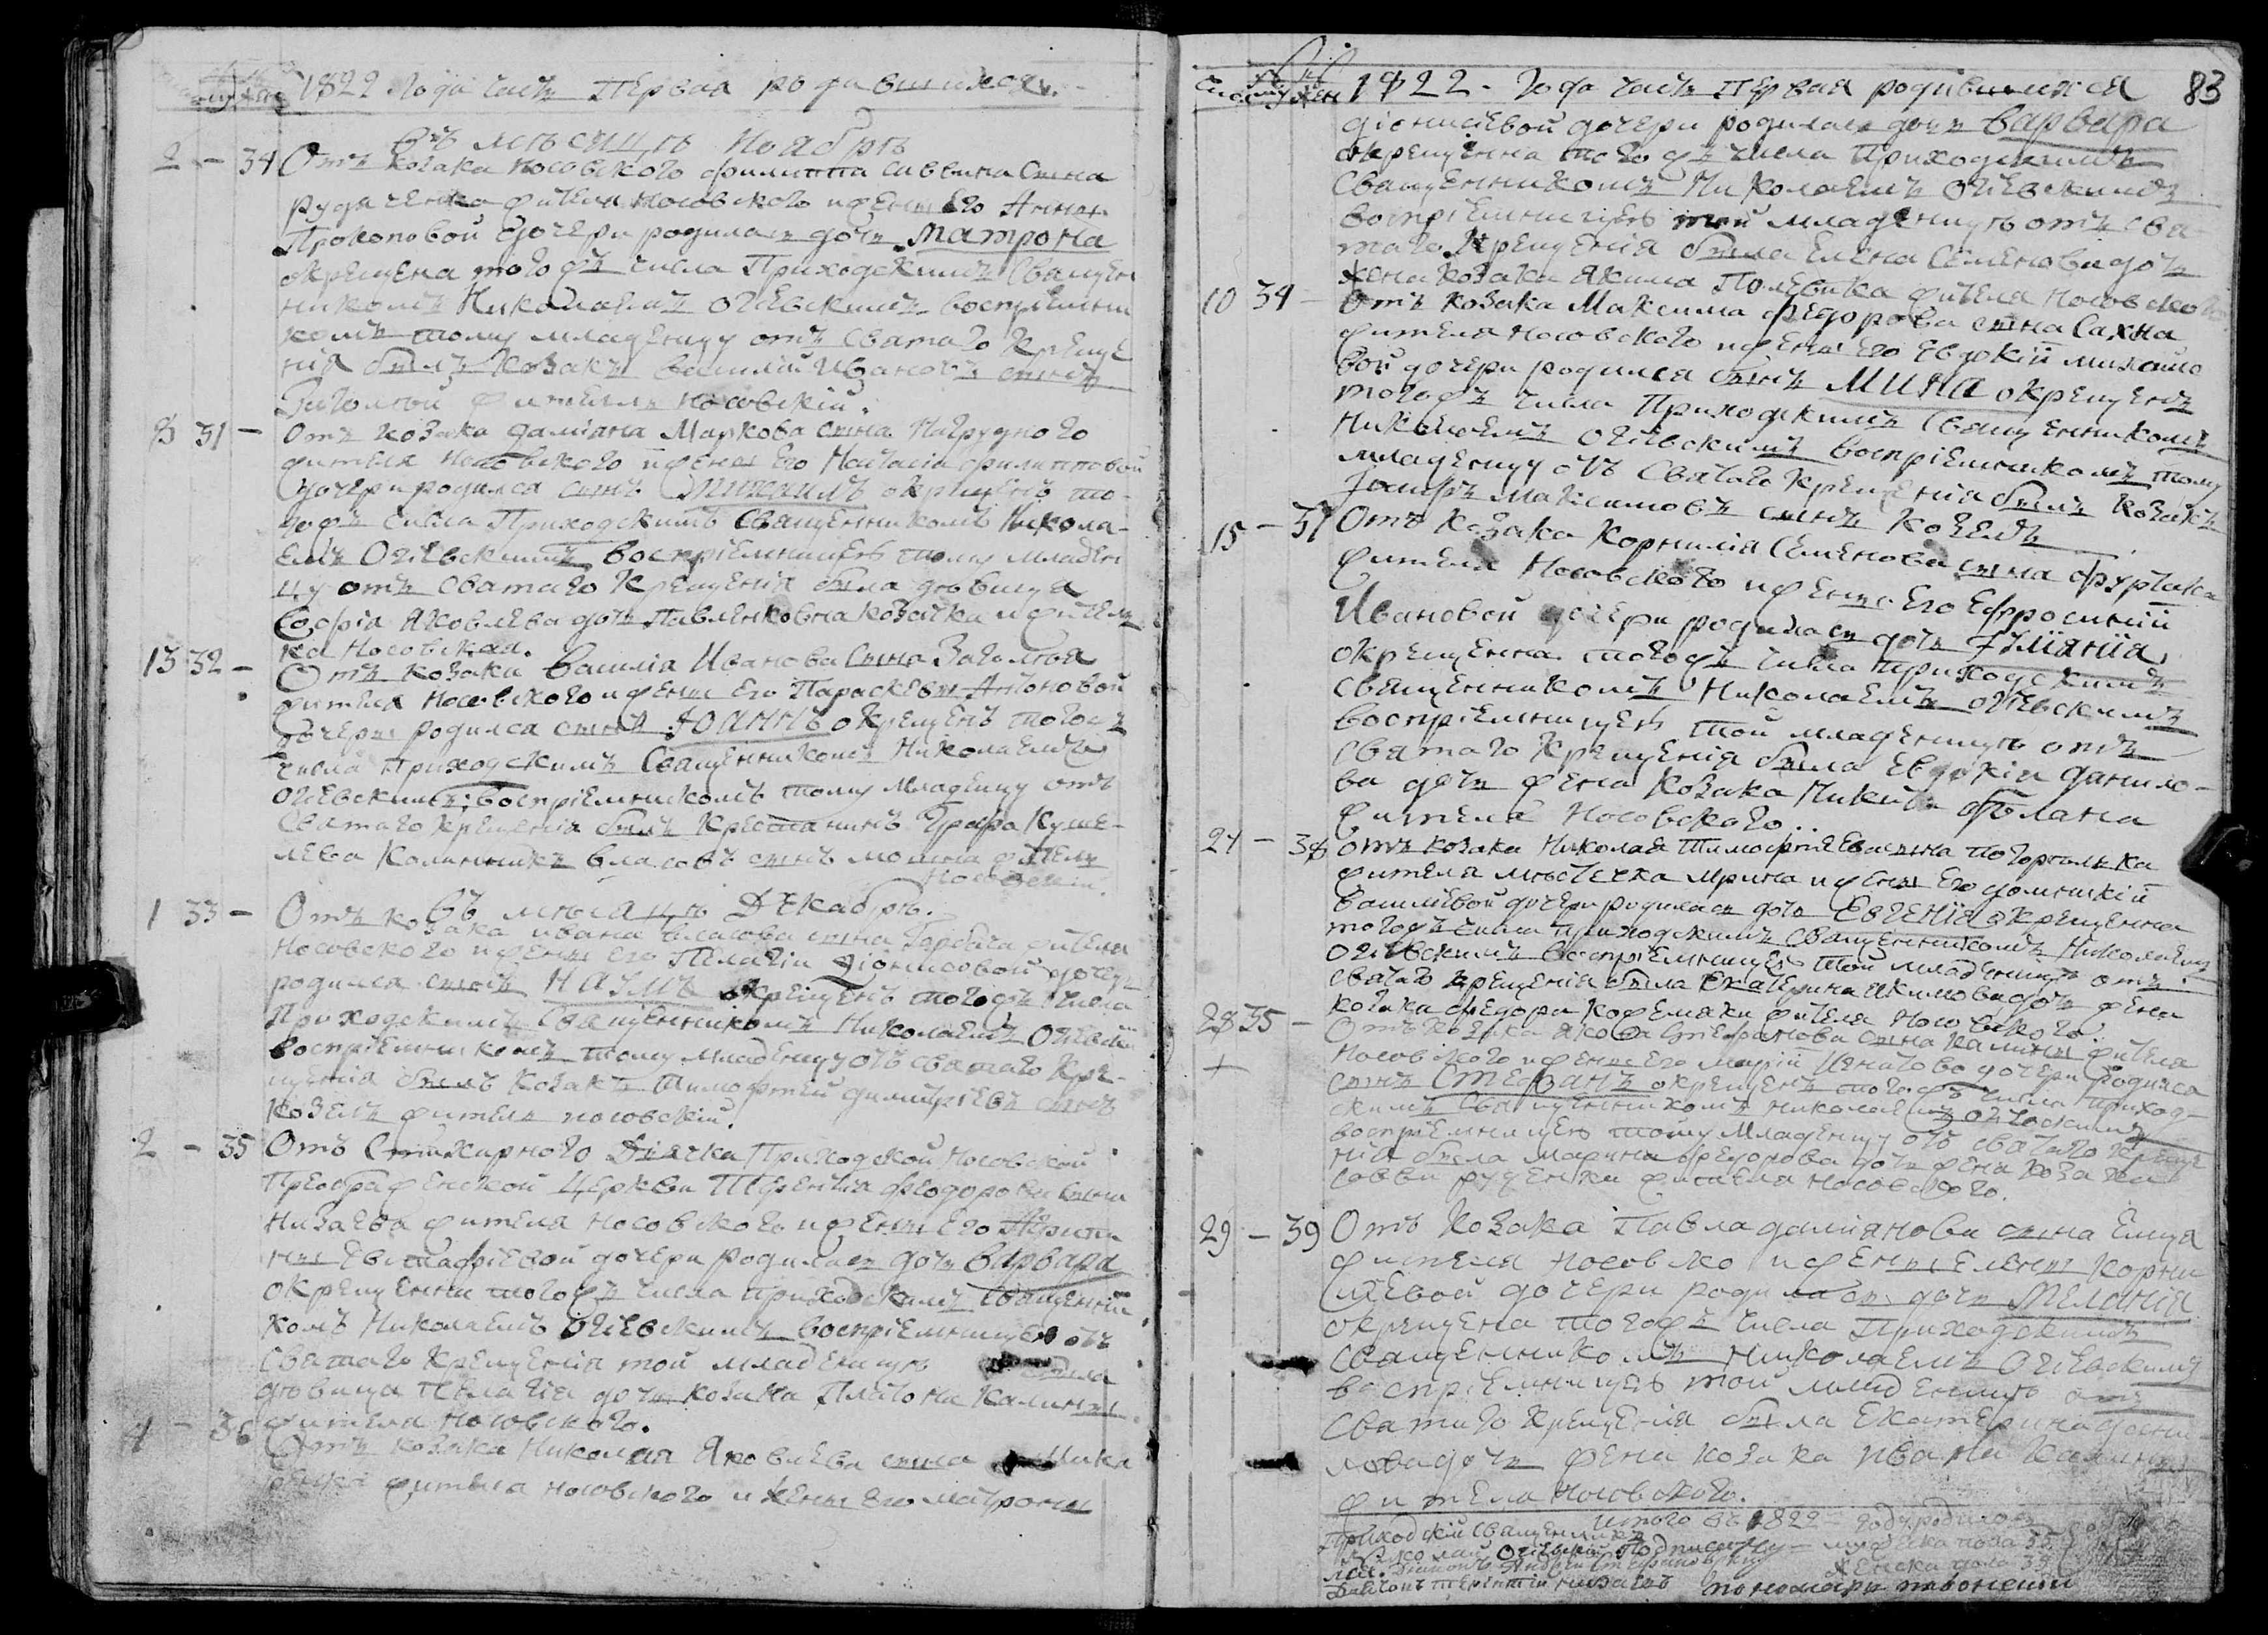 1822 года часть Первая родившихся.
въ мѣсяцѣ Ноябрѣ
2 - 34 Отъ козака носовского филиппа саввина сына
рудаченка жителя носовского и жены его Анны
Прокоповой дочери родилась дочь Матрона
окрещена того жъ числа Приходскимъ Священ
никомъ Николаемъ Огіевскимъ воспріемни
комъ тому младенцу отъ Святаго Креще
нія былъ козакъ василій Ивановъ сынъ
житель носовскій.
8 31 - Отъ козака даміана Маркова сына Нагрудного
жителя носовского и жены его Настасіи филипповой
дочери родился сынъ Михаилъ окрещенъ то
го жъ числа Приходскимъ Священникомъ Никола-
емъ Огіевскимъ воспріемницею тому младен
цу отъ Святаго Крещенія была дѣвица
Софія Яковлева дочь Павленковна козачка и житель
ка Носовская.
13 32 - Отъ козака василія Иванова сына
жителя Носовского и жены его Параскевы Антоновой
дочери родился сынъ Іоаннъ окрещенъ того жъ
числа Приходскимъ Священникомъ Николаемъ
Огіевскимъ; воспріемникомъ тому младенцу отъ
Святаго Крещенія былъ Крестянинъ Графа Куше-
лева Калинникъ власовъ сынъ житель
Носовскій.
въ мѣсяцѣ Декабрѣ.
1 33 - Отъ козака ивана власова сына Горбача жителя
Носовского и жены его Пелагіи Діонисовой дочери
родился сынъ Наумъ окрещенъ того жъ числа
Приходскимъ Священникомъ Николаемъ Огіевским
воспріемникомъ тому младенцу отъ святаго Кре-
щенія былъ козакъ Тимофтей димитріевъ сынъ
козелъ житель носовскій.
2 - 35 Отъ Стихарного Дьячка Приходской Носовской
Преображенской Церкви Терентія Феодорова сына
Низаева жителя носовского и жены его
Евстафіевой дочери родилась дочь Варвара
окрещенна того жъ числа приходскимъ Священни
комъ Николаемъ Огіевскимъ воспріемницею отъ
Святаго Крещенія той младеницѣ была
дѣвица Пелагія дочь козака Платона Калины
жителя носовского.
4 - 36 Отъ козака Николая Яковлева сына
жителя носовского и жены его Матроны
число муж жен 1822 - Года часть Первая родившихся 83
діонисіевой дочери родилась дочь Варвара
окрещенна того жъ числа Приходскимъ
Священникомъ Николаемъ Огіевскимъ
воспріемницею той младеницѣ отъ Свя
таго Крещенія была Елена Семенова дочь
жена козака Якима жителя Носовского
10 34 - Отъ козака Максима Федорова сына Сахна
жителя Носовского и жены его Евдокіи михайло
вой дочери родился сынъ Мина окрещенъ
того жъ числа Приходскимъ Священникомъ
Николаемъ Огіевскимъ воспріемникомъ тому
младенцу отъ Святаго Крещенія былъ козакъ
Іосифъ Максимовъ сынъ козелъ
15 - 37 Отъ козака Корнилія Семенова сына
жителя Носовского и жены его Ефросиніи
Ивановой дочери родилась дочь Іуліанія
окрещенна того жъ числа приходскимъ
священникомъ Николаемъ Огіевскимъ
воспріемницею той младеницѣ отъ
Святаго Крещенія была Евдокія данило-
ва дочь жена козака Никиты
жителя Носовского.
24 - 38 отъ козака Николая Тимофѣева сына
жителя мѣстечка Мрина и жены его домникіи
василіевой дочери родилась дочь Евгенія окрещенна
того жъ числа приходскимъ священникомъ Николаемъ
Огіевскимъ воспріемницею той младеницѣ отъ
святаго крещенія была Екатерина Якимова дочь жена
козака федора Кожемяки жителя Носовского.
28 35 - Отъ козака Якова Стефанова сына Калины жителя
+ Носовского и жены его Маріи Игнатовой дочери родился
сынъ Стефанъ окрещенъ того жъ числа приход-
скимъ священникомъ николаемъ огіевскимъ
воспріемницею тому младенцу отъ святаго креще
нія была Марина федорова дочь жена козака
саввы руденка жителя носовского.
29 - 39 Отъ козака Павла даміанова сына
жителя носовско и жены Елены корни
ліевой дочери родилась дочь Меланія
окрещена того жъ числа Приходскимъ
священникомъ Николаемъ Огіевскимъ
воспріемницею той младеницѣ отъ
Святаго Крещенія была Екатерина дани
лова дочь жена козака ивана Калины
жителя носовского.
Итого въ 1822 годѣ родилось
Приходскій Священникъ
Николай Огіевскій Подписуюсь мужеска пола 35
женска пола 39